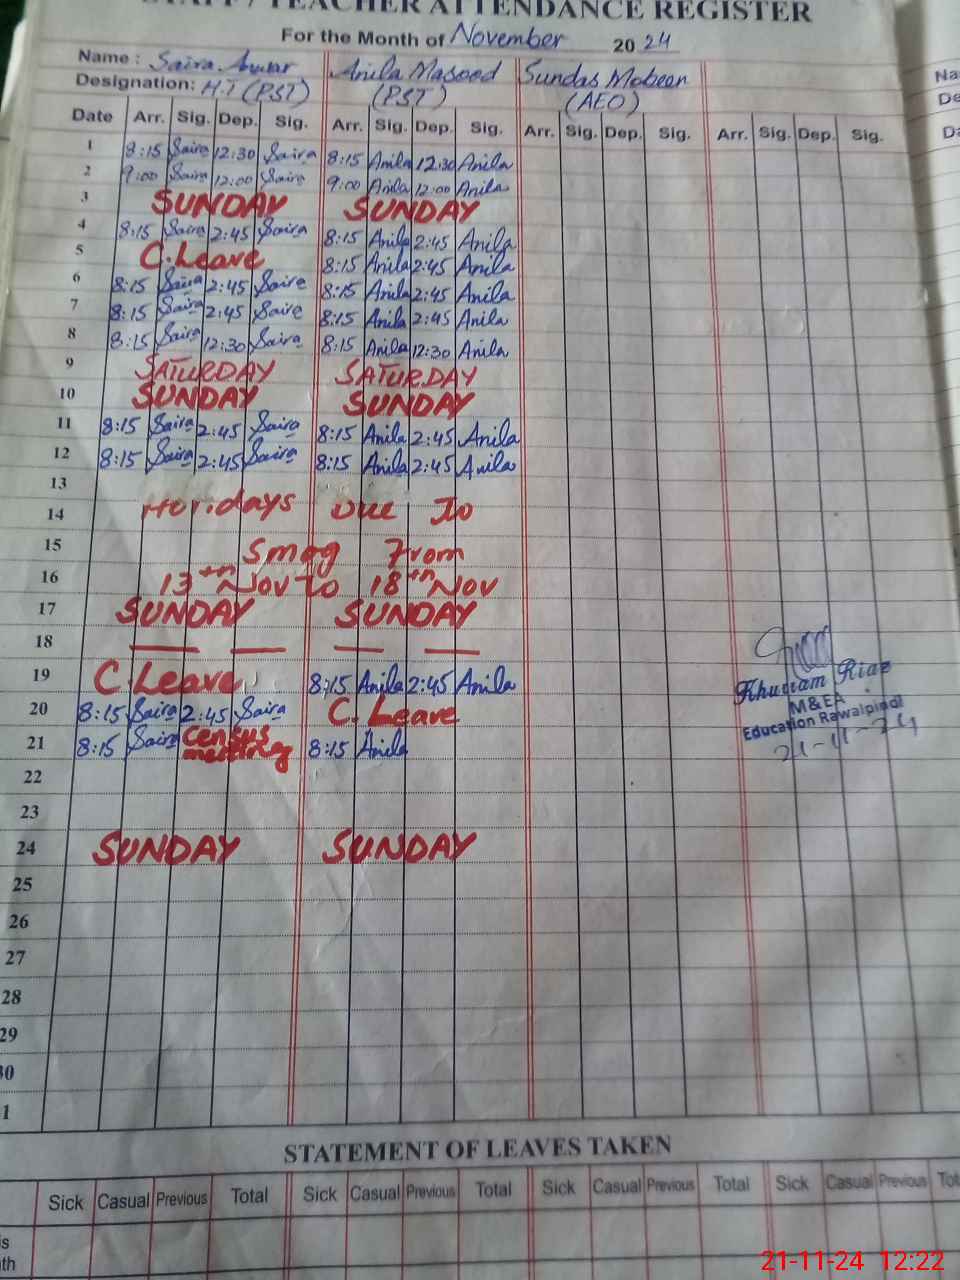 STAFF / TEACHER ATTENDANCE REGISTER
For the Month of November 2024
Name : Saira Anwar Anila Masood Sundas Mobeen Na
Designation: H.T (PST) (PST) (AEO) De
Date Arr. Sig. Dep. Sig. Arr. Sig. Dep. Sig. Arr. Sig. Dep. Sig. Arr. Sig. Dep. Sig. Da
1 8:15 Saira 12:30 Saira 8:15 Anila 12:30 Anila
2 9:00 Saira 12:00 Saira 9:00 Anila 12:00 Anila
3 SUNDAY SUNDAY
4 8:15 Saira 2:45 Saira 8:15 Anila 2:45 Anila
5 C.Leave 8:15 Anila 2:45 Anila
6 8:15 Saira 2:45 Saira 8:15 Anila 2:45 Anila
7 8:15 Saira 2:45 Saira 8:15 Anila 2:45 Anila
8 8:15 Saira 12:30 Saira 8:15 Anila 12:30 Anila
9 SATURDAY SATURDAY
10 SUNDAY SUNDAY
11 8:15 Saira 2:45 Saira 8:15 Anila 2:45 Anila
12 8:15 Saira 2:45 Saira 8:15 Anila 2:45 Anila
13
14 Holidays Due To
15 Smog From
16 13th Nov to 18th Nov
17 SUNDAY SUNDAY
18
19 C.Leave 8:15 Anila 2:45 Anila
20 8:15 Saira 2:45 Saira C. Leave
21 8:15 Saira Census meeting 8:15 Anila
Khurram Riaz
M&EA
Education Rawalpindi
21-11-24
22
23
24 SUNDAY SUNDAY
25
26
27
28
29
30
1
STATEMENT OF LEAVES TAKEN
Sick Casual Previous Total Sick Casual Previous Total Sick Casual Previous Total Sick Casual Previous Tot
is
th
21-11-24 12:22